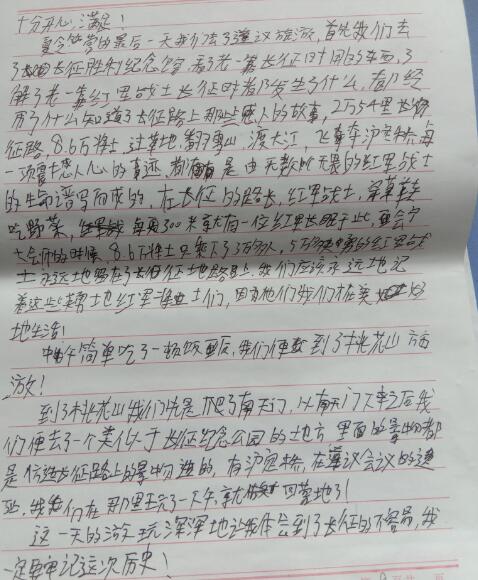 十分开心,满足!
夏令营的最后一天我们去了遵义旅游,首先我们去
了长征胜利纪念馆,看了老一辈长征时用的东西,了
解了老一辈红军战士长征时都发生了什么,都经
历了什么知道了长征路上那些感人的故事,2万5千里长
征路,8.6万将士过草地,翻雪山,渡大江,飞夺泸定桥,每
一项震撼人心的事迹,都是由无数所无畏的红军战士
的生命谱写而成的,在长征的路上,红军战士,穿草鞋
吃野菜,每300米就有一位红军长眠于此,
大会师的时候,8.6万将士只剩下了3万多人,5万多的红军战
士永远地留在了长征地路上,我们应该永远地记
着这些红军战士们,因为他们我们才在美好
地生活!
中午简单吃了一顿饭后,我们便到了桃花山
游!
到了桃花山我们先是爬了南天门,从南天门下来之后我
们便去了一个类似于长征纪念公园的地方里面的景物都
是仿造长征路上的景物造的,有泸定桥,遵义会议的遗
址,我们在那里玩了一下午,就回营地了!
这一天的游玩深深地让我体会到了长征的不容易,我
一定要牢记这次历史!